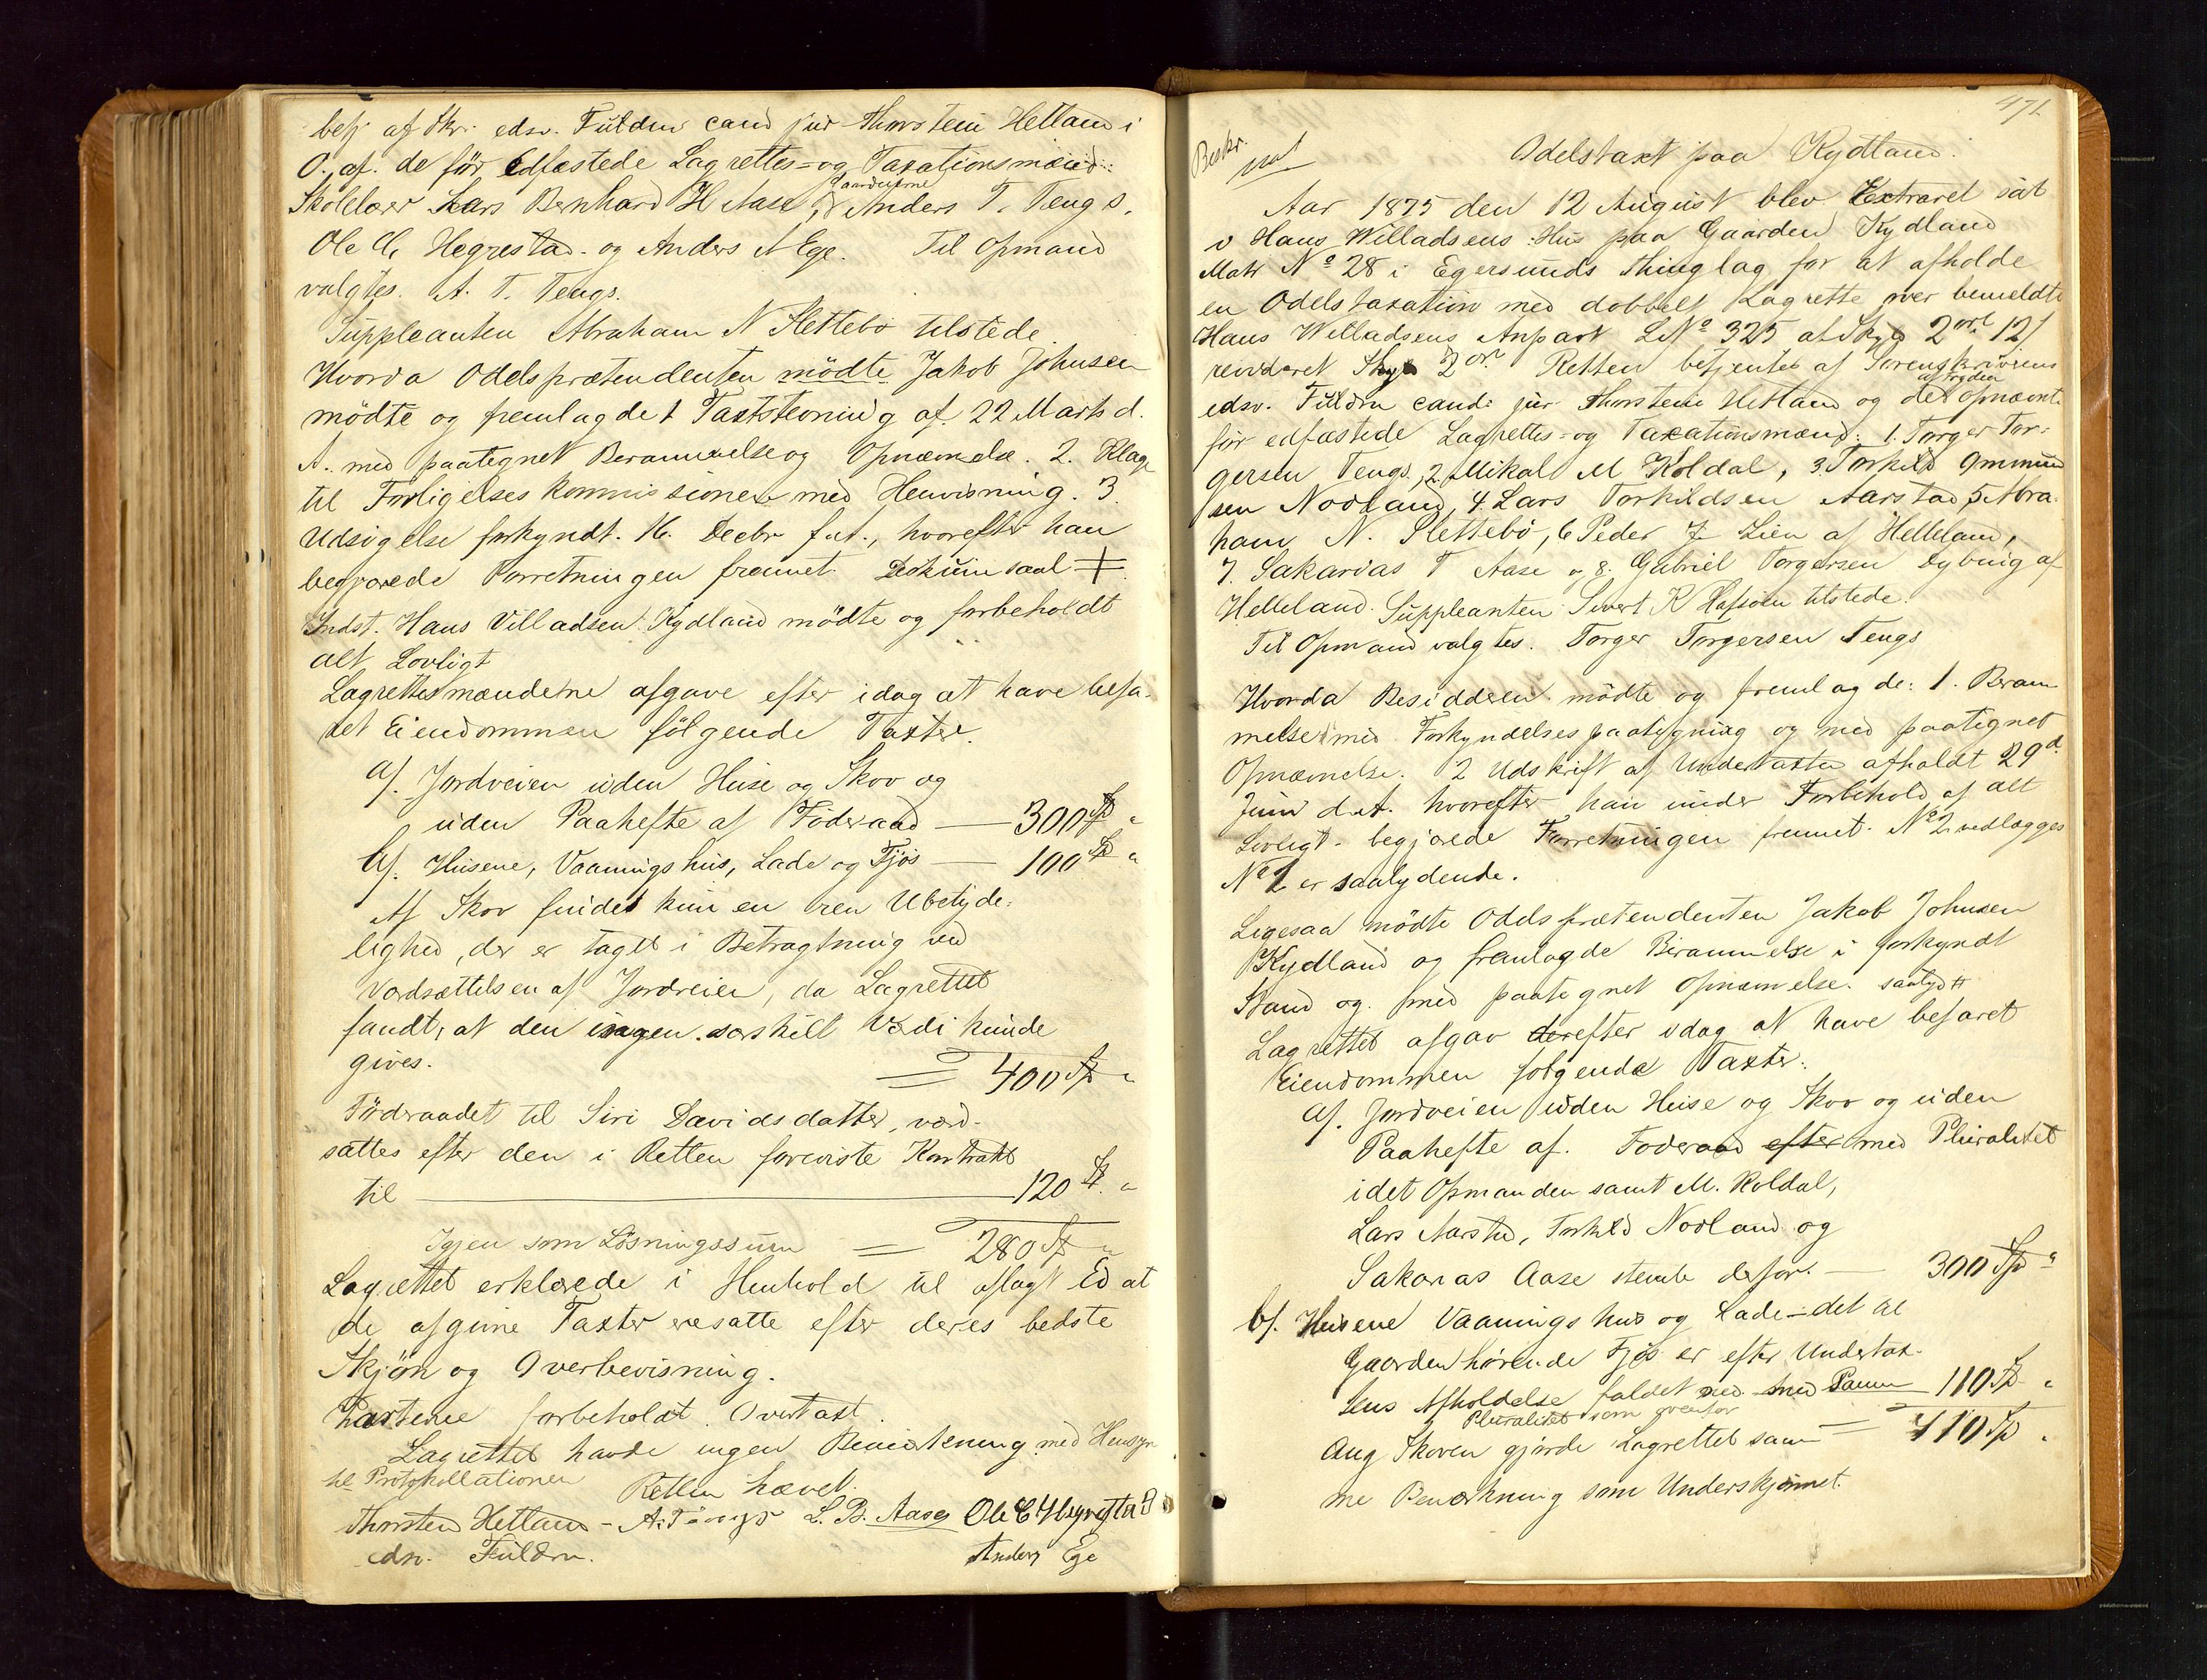 betj. af Skr. edsv. Fuldm cand jur Thorstein Hetland i
O. af. de för Edfæstede Lagrettes- og Taxationsmænd:
Skolelærer Lars Bernhard H Aase, Gaardmændene Anders T. Tengs,
Ole C. Hegrestad og Anders A Ege. Til Opmand
valgtes A. T. Tengs.
Suppleanten Abraham N Slettebö tilstede.
Hvorda Odelsprætendenten mödte Jakob Johnsen
mödte og fremlagde 1 Taxtstevning af 22 Marts d.
A. med paategnet Berammelse og Opnævnelse. 2. Klage
til Forligelseskommissionen med Henvisning. 3.
Udsigelse forkyndt 16. Decbr f. A., hvorefter han
begjærede Forretningen fremmet.
Indst. Hans Villadsen Kydland mödte og forbeholdt
alt Lovligt
Lagrettesmændene afgave efter idag at have befa-
ret Eiendommen fölgende Taxter.
a/. Jordveien uden Huse og Skov og
uden Paahefte af Föderaad — 300 Sp "
b/. Husene, Vaaningshus, Lade og Fjös — 100 Sp "
Af Skov findes kun en ren Ubetyde-
lighed, der er taget i Betragtning ved
Værdsættelsen af Jordveien, da Lagrettet
fandt, at den ingen særskilt Værdi kunde
gives. = 400 Sp "
Föderaadet til Siri Davidsdatter, værd-
sattes efter den i Retten foreviste Kontrakt
til — 120 Sp "
Igjen som Lösningssum = 280 Sp "
Lagrettet erklærede i Henhold til aflagt Ed at
de afgivne Taxter ere satte efter deres bedste
Skjön og Overbevisning.
Parterne forbeholdt Overtaxt.
Lagrettet havde ingen Bemærkning med Hensyn
til Protokollationen Retten hævet.
Thorstein Hetland - A. T. Tengs L. B. Aase Ole C Hegrestad
edsv. Fuldm. Anders Ege
471
Beskr.
Odelstaxt paa Kydland.
Aar 1875 den 12 August blev Extraret sat
i Hans Willadsens Hus paa Gaarden Kydland
Matr No 28 i Egersunds Thinglag for at afholde
en Odelstaxation med dobbelt Lagrette over bemeldte
Hans Willadsens Anpart LNo 325 af Skyld 2 ort 12 /
revideret Skyld 2 ort Retten betjentes af Sorenskriverens
edsv. Fuldm cand: jur Thorstein Hetland og de af Fogden opnævnte
för edfæstede Lagrettes- og Taxationsmænd: 1. Torger Tor-
gersen Tengs, 2 Mikal M Koldal, 3 Torkild Ommund
sen Nodland, 4. Lars Torkildsen Aarstad, 5 Abra-
ham N. Slettebö, 6 Peder Lien af Helleland,
7. Sakarias T Aase og 8. Gabriel Torgersen Dybing af
Helleland. Suppleanten Sivert R Hafsöen tilstede.
Til Opmand valgtes Torger Torgersen Tengs
Hvorda Besidderen mödte og fremlagde: 1. Beram-
melse med Forkyndelsespaategning og med paategnet
Opnævnelse. 2 Udskrift af Undertaxten afholdt 29 d.
Juni d. A. hvorefter han under Forbehold af alt
Lovligt begjærede Forretningen fremmet. No 2 vedlægges
No 1 er saalydende.
Ligesaa mödte Odelsprætendenten Jakob Johnsen
Kydland og fremlagde Berammelse i forkyndt
Stand og med paategnet Opnævnelse saalyd
Lagrettet afgav derefter idag at have befaret
Eiendommen fölgende Taxter:
a/. Jordveien uden Huse og Skov og uden
Paahefte af Föderaad efter med Pluralitet
idet Opmanden samt M. Koldal,
Lars Aarstad, Torkild Nodland og
Sakarias Aase stemte derfor. — 300 Sp "
b/. Husene Vaaningshus og Lade - det til
Gaarden hörende Fjös er efter Undertax-
tens Afholdelse faldet ned - med samme 110 Sp "
Pluralitet som ovenfor = 410 Sp "
Ang Skoven gjorde Lagrettet sam-
me Bemærkning som Underskjönnet.